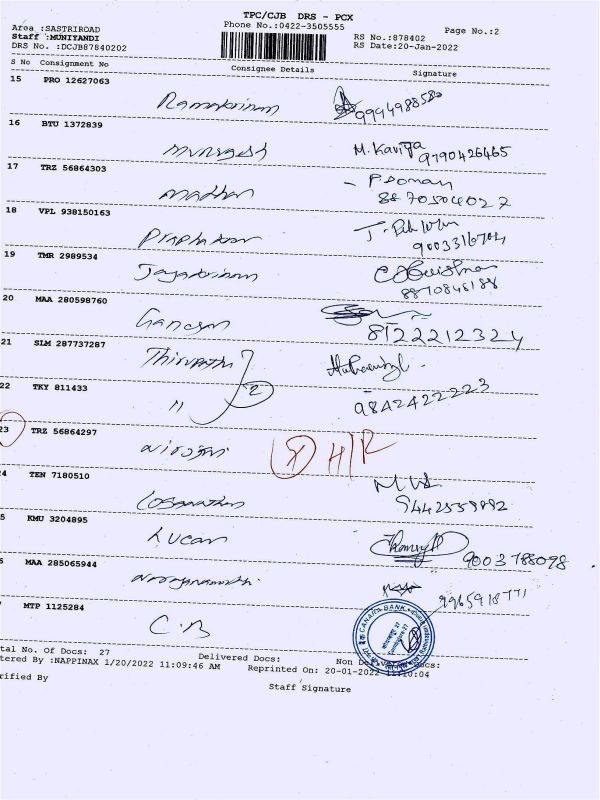 TPC/CJB DRS - PCX
Area :SASTRIROAD
Phone No.:0422-3505555
Page No.:2
Staff :MUNIYANDI
RS No.:878402
DRS No. :DCJB87840202
RS Date:20-Jan-2022
S No Consignment No Consignee Details Signature
15 PRO 12627063
Ramakrishnan
16 BTU 1372839
Murugesh M. Kaviya 9790426465
17 TRZ 56864303
Madhan
8870504027
18 VPL 938150163
Prabhakaran
9003316704
19 TMR 2989534
Jayakrishnan
8870848188
20 MAA 280598760
Ganesan
8122212324
21 SLM 287737287
Thirupathi 2
22 TKY 811433
" 9842422223
23 TRZ 56864297
H/R
24 TEN 7180510
Loganathan
KMU 3204895
9003788098
MAA 285065944
Narayanamoorthi 9965918771
MTP 1125284
C.B
CANARA BANK
tal No. Of Docs: 27 Delivered Docs: Non Delivered Docs:
tered By :NAPPINAX 1/20/2022 11:09:46 AM Reprinted On: 20-01-2022 11:10:04
rified By
Staff Signature